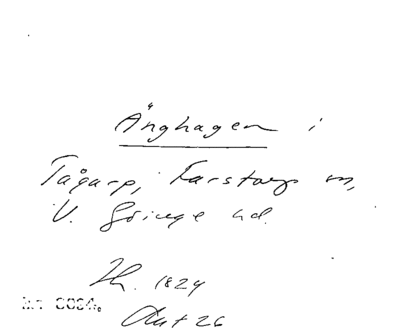 Änghagen i
Tågarp, Farstorp sn,
V. Göinge hd.
Th. 1824
Akt 26